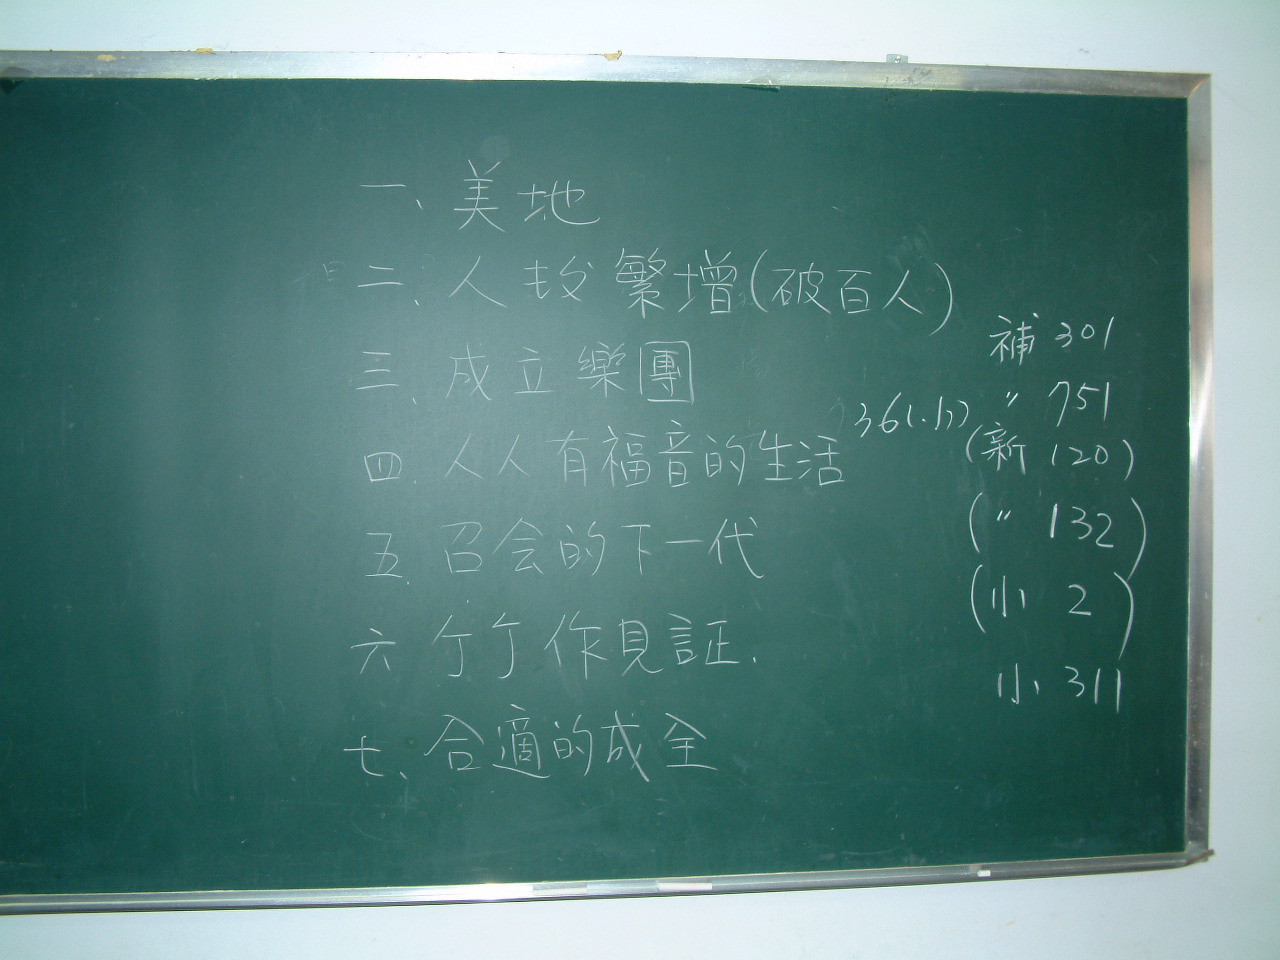 一、美地
二、人 繁增(破百人)
三、成立樂團
四、人人有福音的生活
五、召会的下一代
六、作見証.
七、合適的成全
補 301
〃 751
36(.17)
(新 120)
(〃 132)
(小 2)
小 311